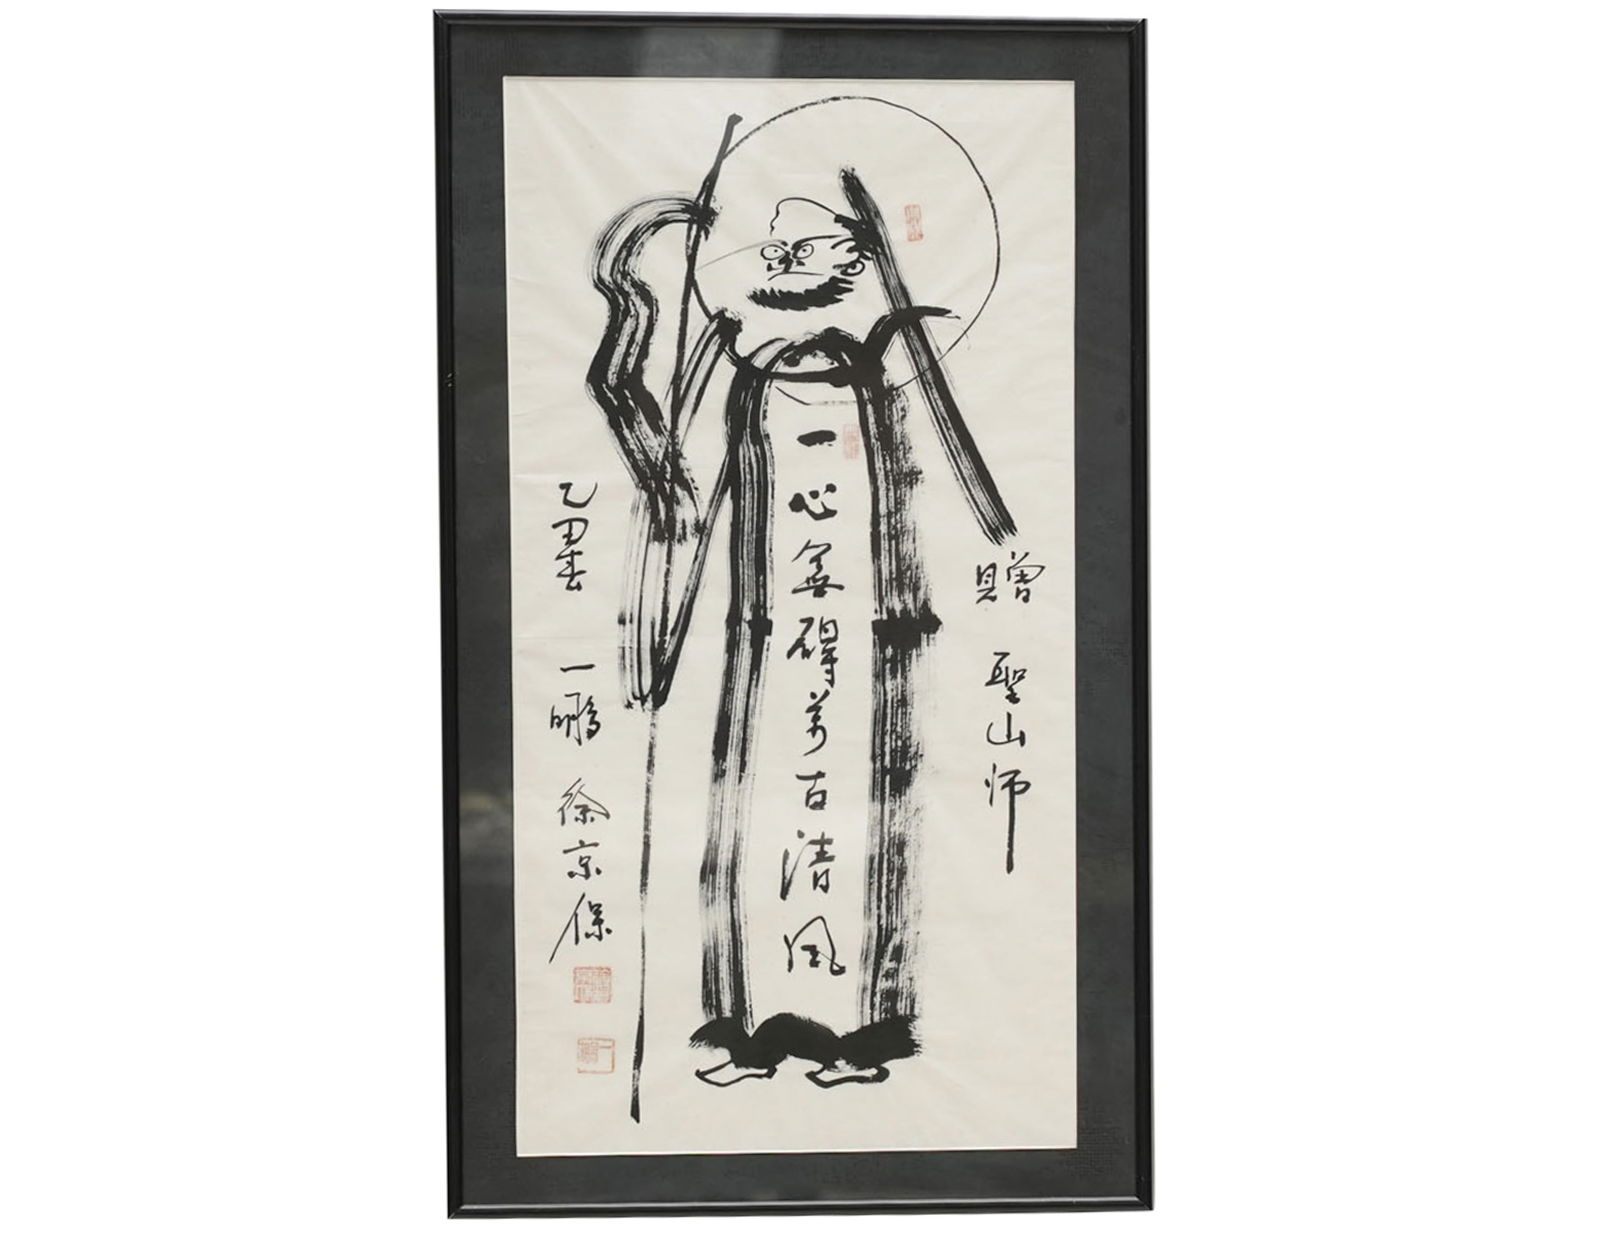 贈 聖山師
一心無碍萬古清風
乙丑春 一鵬 徐京保